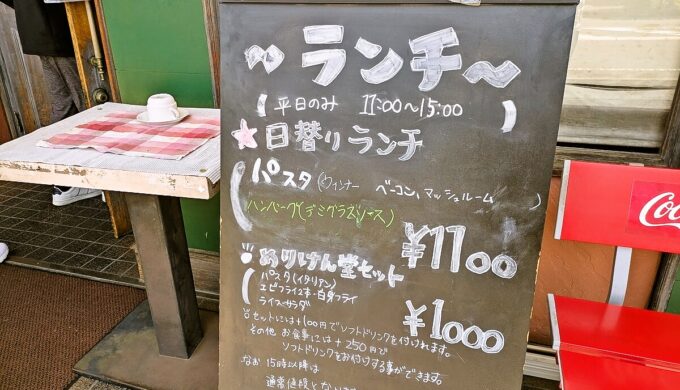 ～ランチ～
(平日のみ 11:00～15:00)
★日替りランチ
パスタ(ウィンナー ベーコン、マッシュルーム)
ハンバーグ(デミグラスソース)
¥1100
ありけん堂セット
パスタ(イタリアン)
エビフライ2本・白身フライ
ライス・サラダ
¥1000
セットには+100円でソフトドリンクを付けれます。
その他 お食事には +250円で
ソフトドリンクをお付けする事ができます。
なお 15時以降は
通常値段となり
Coc